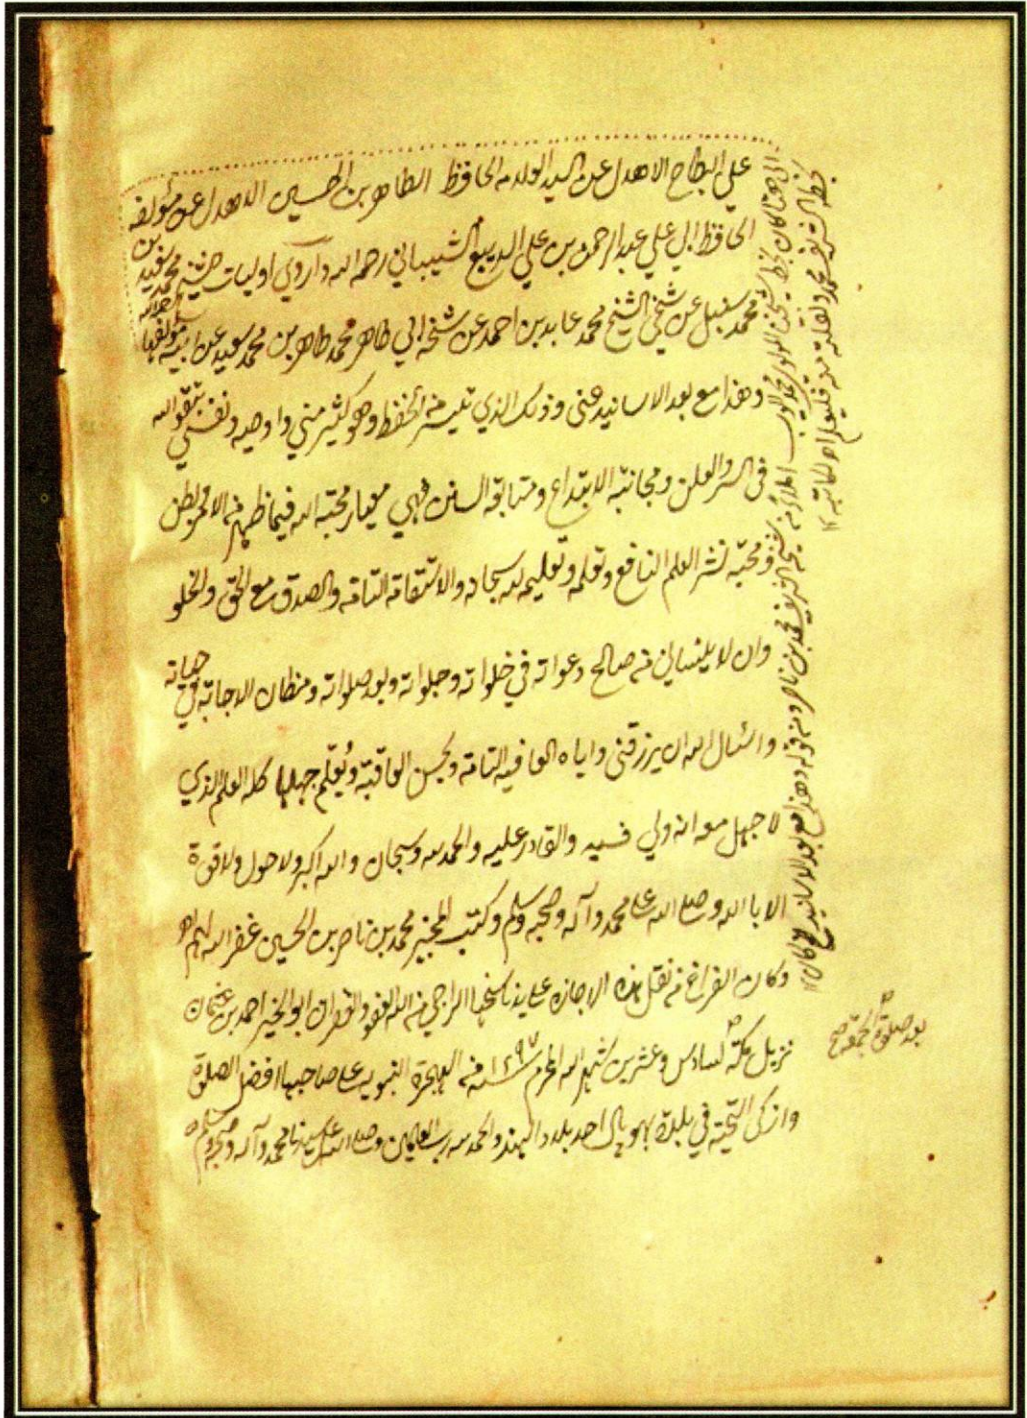 علي البطاح الاهدل عن السيد الوالد الحافظ الطاهر بن الحسين الاهدل عن مؤلفه
الحافظ ابي علي عبد الرحمن بن علي الديبع الشيباني رحمه الله واروي اوليات محمد سعيد بن
محمد سنبل عن شيخي الشيخ محمد عابد بن احمد عن شيخه ابي طاهر محمد طاهر بن محمد سعيد عن ابيه مؤلفها
وهذا مع بعد الاسانيد عني وذلك الذي تيسر من الحفظ وهو كثير مني واوصيه ونفسي بتقوى الله
في السر والعلن ومجانبة الابتداع ومتابعة السنن فهي معيار محبة الله فيما ظهر من الامر وبطن
ومحبة نشر العلم النافع وتعلمه وتعليمه لله سبحانه والاستقامة التامة والصدق مع الحق والخلق
وان لا ينساني من صالح دعواته في خلواته وجلواته وبعد صلواته ومظان الاجابة في حياته
واسئال الله ان يرزقني واياه العافية التامة وحسن العاقبة ويُعلّم جهلنا كله العلم الذي
لا جهل معه انه ولي فسيد والقادر عليه والحمد لله وسبحان والله اكبر ولا حول ولا قوة
الا بالله وصلى الله على محمد وآله وصحبه وسلم وكتب المجيز محمد بن ناصر بن الحسين غفر الله لهم اه
وكان الفراغ من نقل هذه الاجازة على يد ناسخها الراجي من الله العفو والغفران ابو الخير احمد بن عثمان
نزيل مكة لسادس وعشرين شهر الله المحرم سنة ١٢٩٧ من الهجرة النبوية على صاحبها افضل الصلوة
وازكى التحية في بلدة بهوپال احد بلاد الهند والحمد لله رب العالمين وصلى الله على سيدنا محمد وآله وصحبه وسلم
بعد صلوة الجمعة صح
الى هنا كان بخط شيخنا
وهذا مع بعد الاسانيد